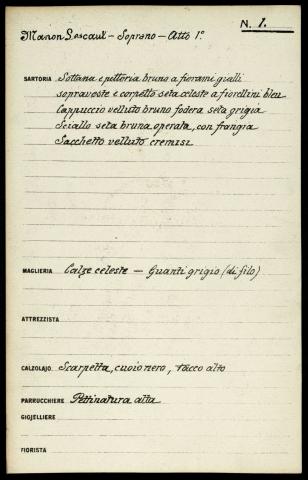 N. 1.
Manon Lescaut - Soprano - Atto 1º
SARTORIA Sottana e pettoria bruno a fiorami gialli
sopravoste e corpetto seta celeste a fiorellini bleu
Cappuccio velluto bruno fodera seta grigia
Sciallo seta bruna operata, con frangia
Sacchetto velluto cremisi
MAGLIERIA Calze celeste - Guanti grigio (di filo)
ATTREZZISTA
CALZOLAJO Scarpetta, cuoio nero, tacco alto
PARRUCCHIERE Pettinatura alta
GIOJELLIERE
FIORISTA